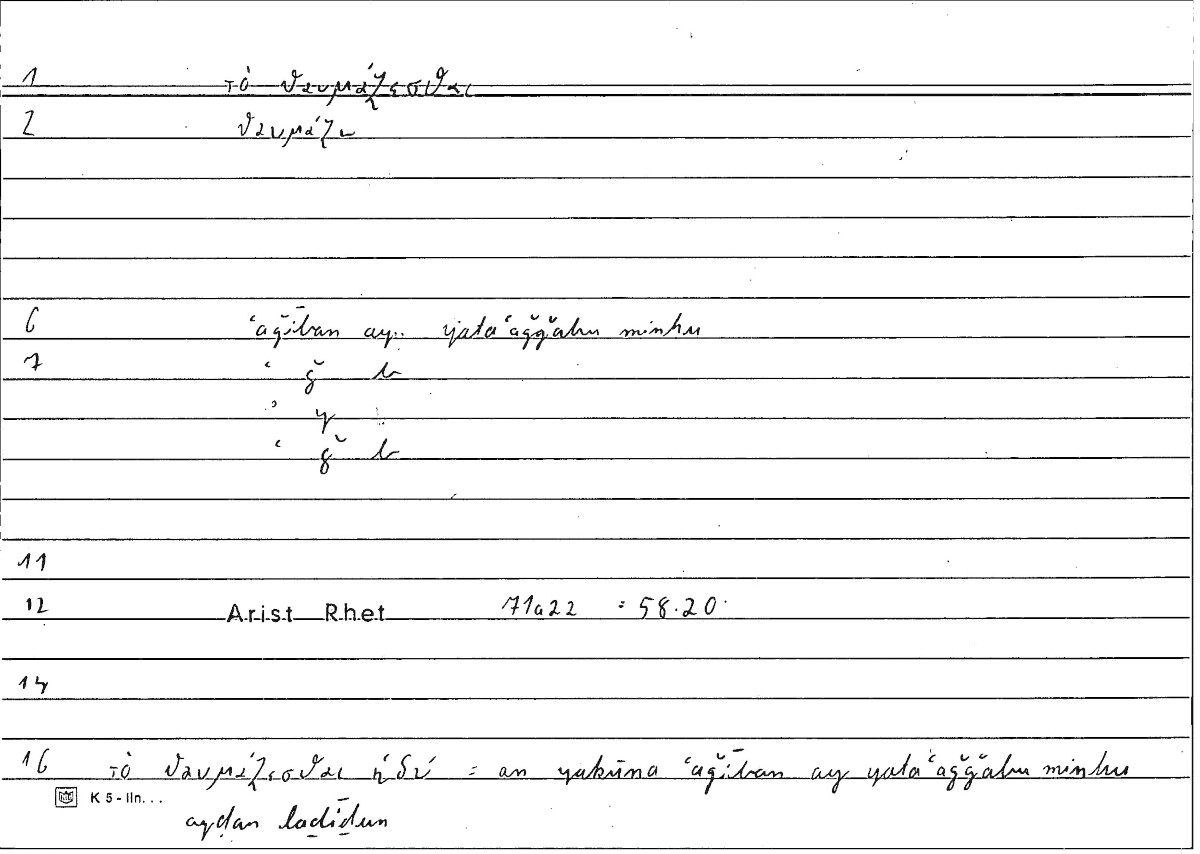 1 τὸ θαυμάζεσθαι
2 θαυμάζω
6 ʿaǧīban ay.. yataʿaǧǧabu minhu
7 ʿ ǧ b
ʾ y
ʿ ǧ b
11
12 Arist Rhet 71a22 = 58.20
14
16 τὸ θαυμάζεσθαι ἡδύ = an yakūna ʿaǧīban ay yataʿaǧǧabu minhu
K 5 - lln. . .
ayḍan laḏīḏun